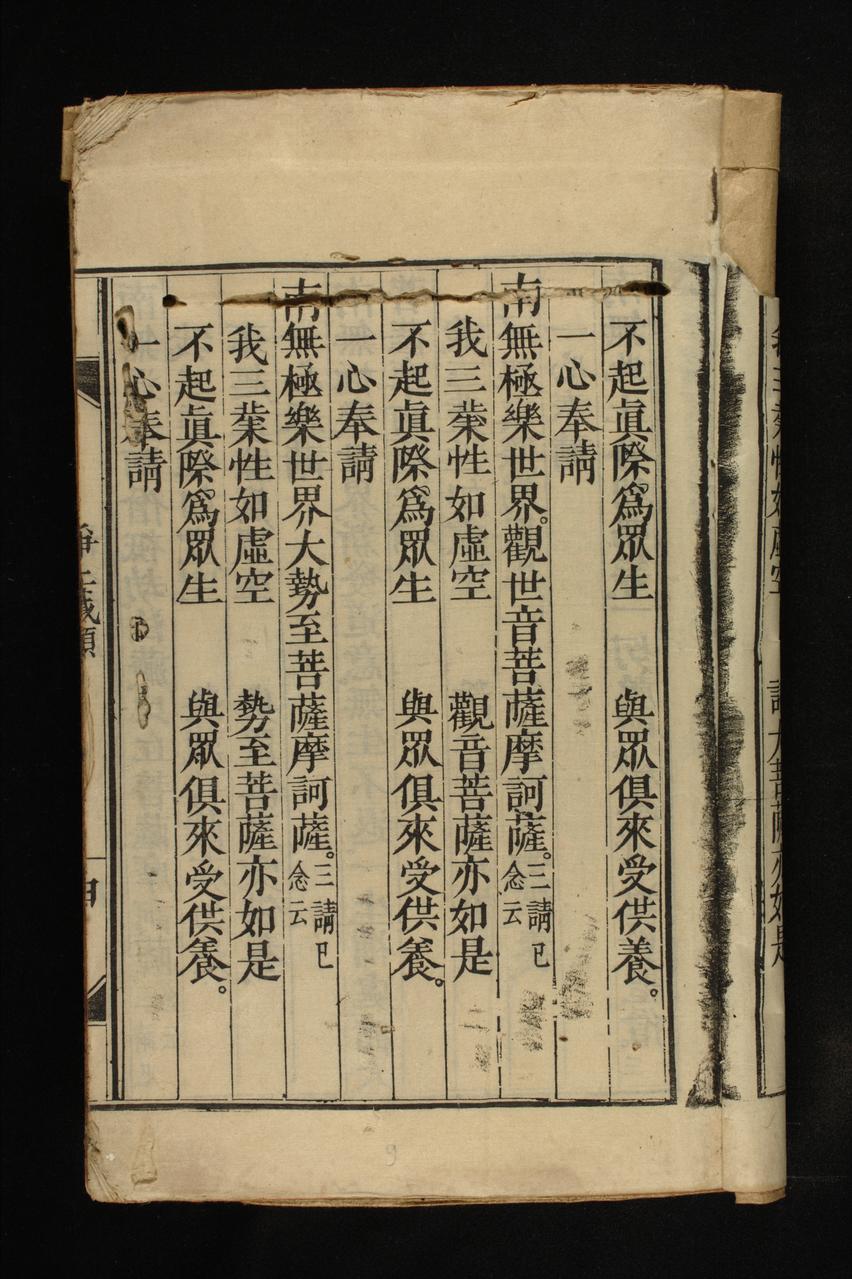 我三業性如虛空　諸大菩薩亦如是
不起眞際爲眾生　與眾俱來受供養。
一心奉請
南無極樂世界。觀世音菩薩摩訶薩。三請已念云
我三業性如虛空　觀音菩薩亦如是
不起眞際爲眾生　與眾俱來受供養。
一心奉請
南無極樂世界大勢至菩薩摩訶薩。三請已念云
我三業性如虛空　勢至菩薩亦如是
不起眞際爲眾生　與眾俱來受供養。
一心奉請
淨土懺願